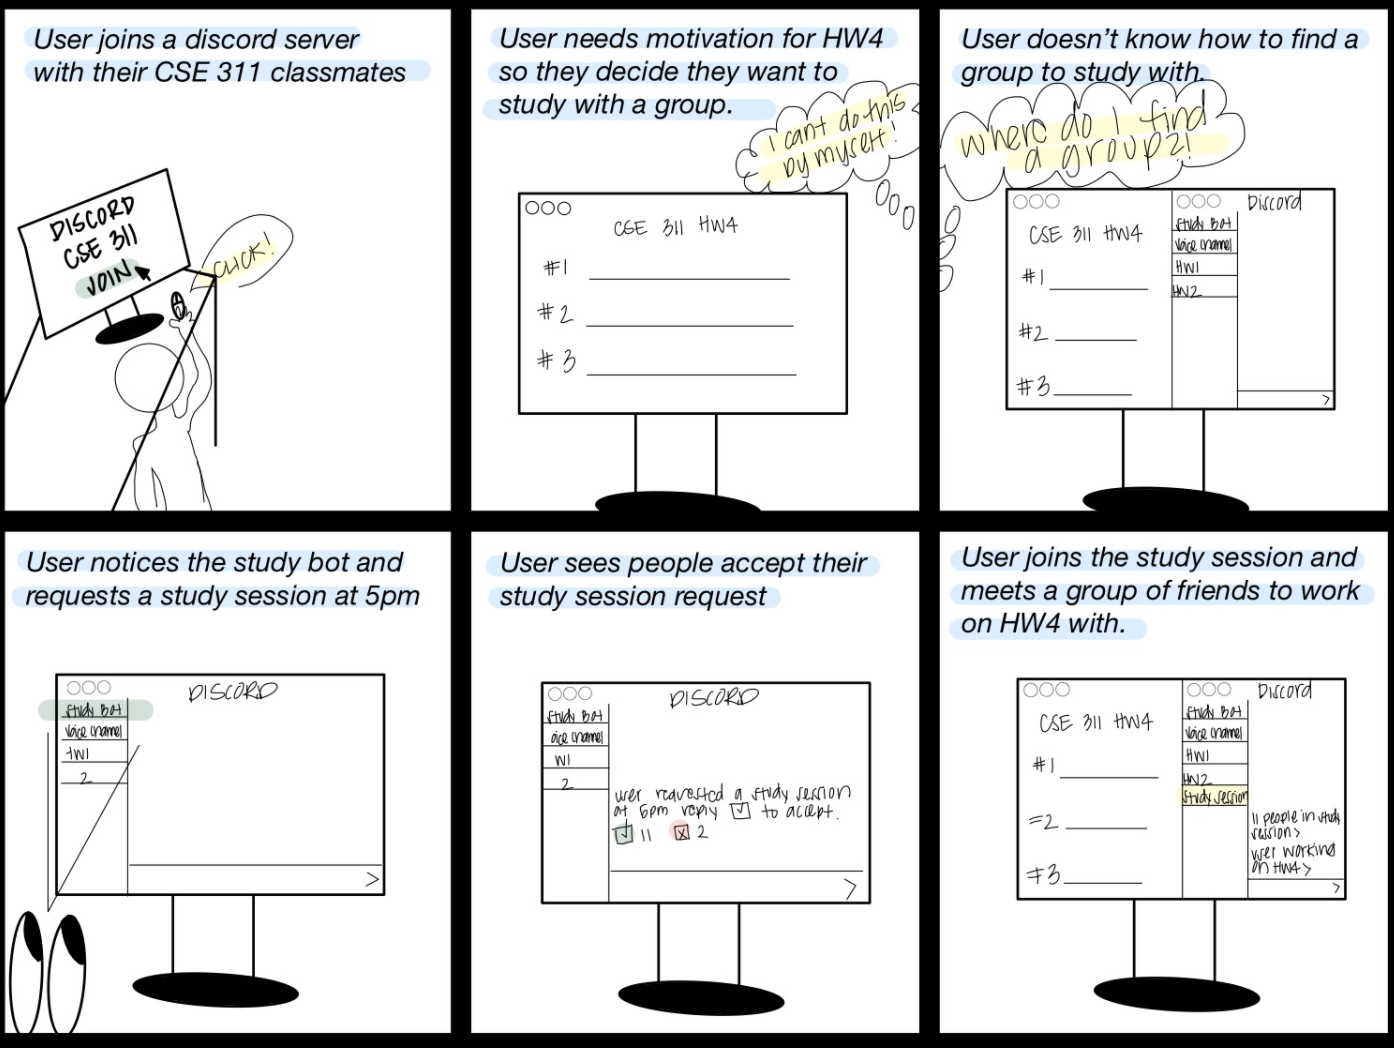 User joins a discord server
with their CSE 311 classmates
DISCORD
CSE 311
JOIN
CLICK!
User needs motivation for HW4
so they decide they want to
study with a group.
I cant do this
by myself!
CSE 311 HW4
#1
#2
#3
User doesn't know how to find a
group to study with.
where do I find
a group?!
Discord
Study Bot
Voice Channel
HW1
HW2
CSE 311 HW4
#1
#2
#3
>
User notices the study bot and
requests a study session at 5pm
DISCORD
Study Bot
Voice Channel
HW1
2
>
User sees people accept their
study session request
DISCORD
Study Bot
oice Channel
W1
2
user requested a study session
at 5pm reply ✓ to accept.
✓ 11 x 2
>
User joins the study session and
meets a group of friends to work
on HW4 with.
Discord
Study Bot
Voice Channel
HW1
HW2
Study Session
CSE 311 HW4
#1
=2
#3
11 people in study
session>
user working
on HW4>
>